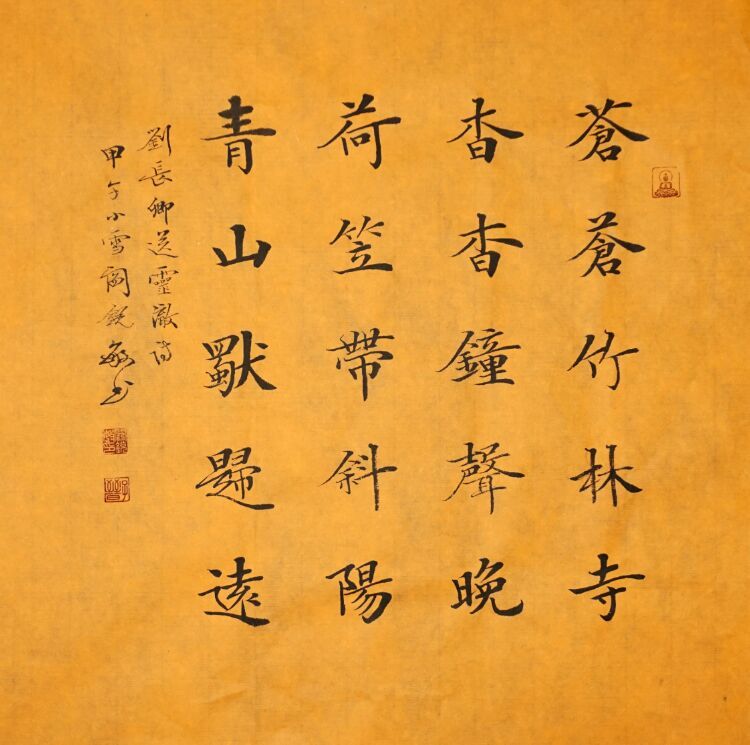 蒼蒼竹林寺
杳杳鐘聲晚
荷笠帶斜陽
青山獨歸遠
劉長卿送靈澈詩
甲午小雪閻銳敏书